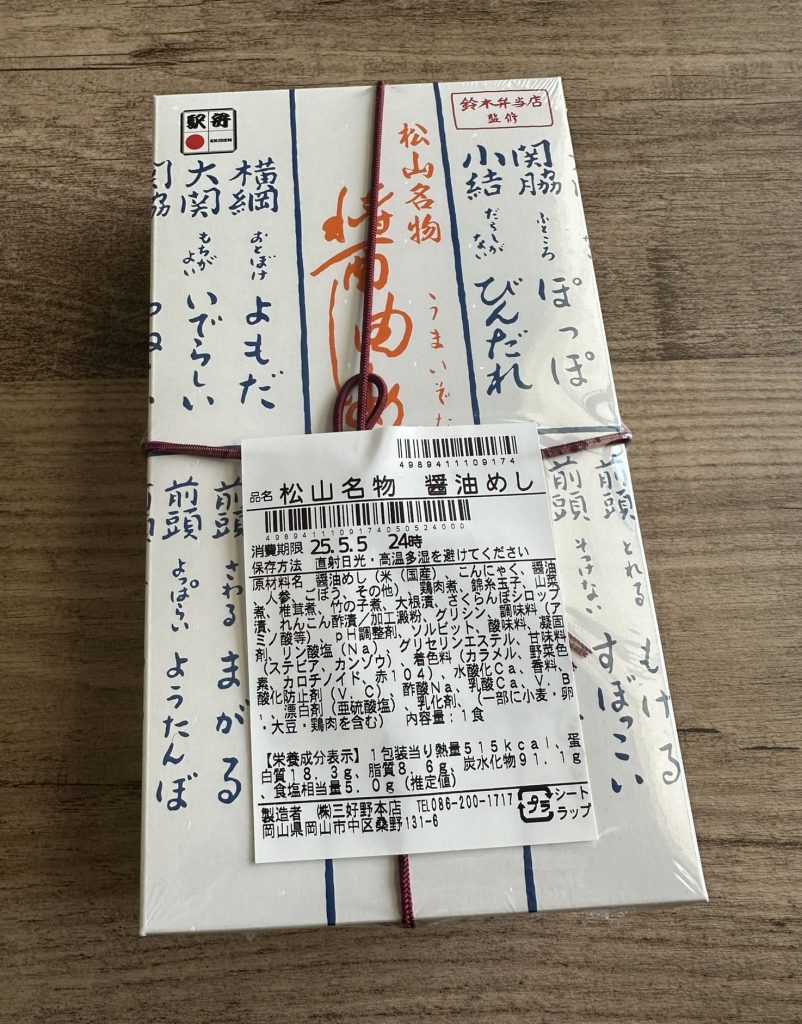 駅弁
EKIBEN
鈴木弁当店
監修
松山名物
醤油めし
うまいぞな
関脇
ふところ
ぽっぽ
小結
だらしがない
びんだれ
横綱
おとぼけ
よもだ
大関
もちがよい
いでらしい
前頭
とれる
もげる
前頭
そっけない
すぼっこい
前頭
さわる
まがる
前頭
よっぱらい
ようたんぼ
4989411109174
品名 松山名物 醤油めし
4989411091740505240 00
消費期限 25.5.5 24時
保存方法 直射日光・高温多湿を避けてください
原材料名 醤油めし(米(国産)、こんにゃく、醤油
、人参、ごぼう、その他)、鶏肉煮、錦糸玉子、山菜
煮、椎茸煮、竹の子煮、大根漬、さくらんぼシロップ
漬、れんこん酢漬/加工澱粉、
ミノ酸等)、pH調整剤、ソルビット、
剤、リン酸塩(Na)、グリセリンエステル、
(ステビア、カンゾウ)、着色料(
素、カロチノイド、赤104)、水酸化Ca、
化防止剤(V.C)、酢酸Na、乳酸Ca、V.B
、漂白剤(亜硫酸塩)、乳化剤、(一部に小麦・卵
・大豆・鶏肉を含む) 内容量:1食
【栄養成分表示】1包装当り熱量515kcal、蛋
白質18.3g、脂質8.6g、炭水化物91.1g
、食塩相当量5.0g(推定値)
製造者 (株)三好野本店 TEL086-200-1717
岡山県岡山市中区桑野131-6
プラ
シート
ラップ